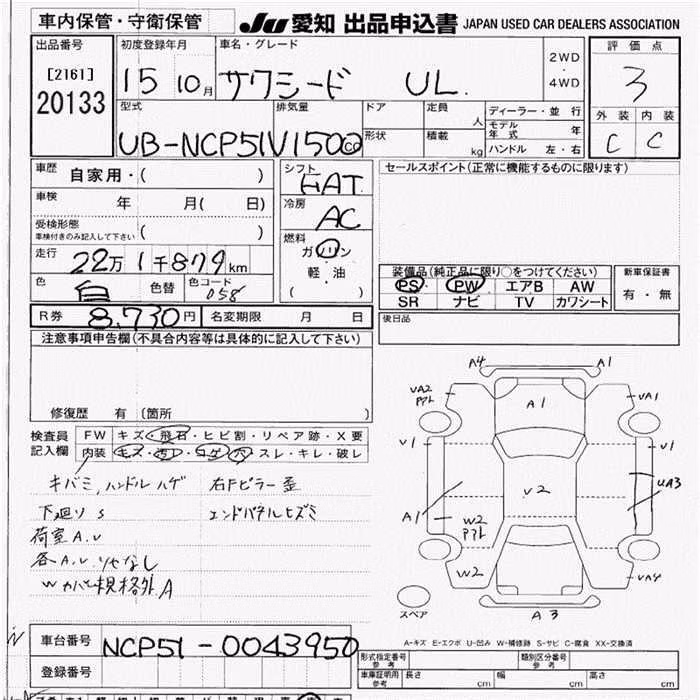 車内保管・守衛保管
JU 愛知 出品申込書 JAPAN USED CAR DEALERS ASSOCIATION
出品番号 初度登録年月 車名・グレード 2WD・4WD 評価点
[2161] 15 10月 サクシード UL 3
20133
型式 排気量 ドア 定員 人 ディーラー・並行 外装 内装
形状 積載 kg モデル年式 年
UB-NCP51V 1500cc ハンドル 左・右 C C
車歴 自家用・( ) シフト FAT セールスポイント(正常に機能するものに限ります)
車検 年 月( 日) 冷房 AC
受検形態 車検付きのみ記入して下さい ( )
燃料 ガソリン
走行 22万1千879km 軽・油
色 白 色替 色コード 058 ( )
装備品(純正品に限り○をつけてください) 新車保証書
PS PW エアB AW 有・無
SR ナビ TV カワシート
R券 8,730円 名変期限 月 日 後日品
注意事項申告欄(不具合内容等は具体的に記入して下さい)
修復歴 有 〔箇所 〕
検査員記入欄 FW キズ・飛石・ヒビ割・リペア跡・X要
内装 キズ・汚レ・コゲ・穴・スレ・キレ・破レ
キバミ,ハンドルハゲ 右Fピラー歪
下廻りS エンドパネルヒズミ
荷室A.U
各A.U.
規格外A
A4 A1
UA2 A1 UA1
V1 V1
V2 UA3
A1 W2
W2 UA4
スペア A3
A-キズ E-エクボ U-凹み W-補修跡 S-サビ C-腐食 XX-交換済
車台番号 NCP51-0043950
登録番号
形式指定番号 参考 類別区分番号 参考
車庫証明用 参考 長さ cm 幅 cm 高さ cm